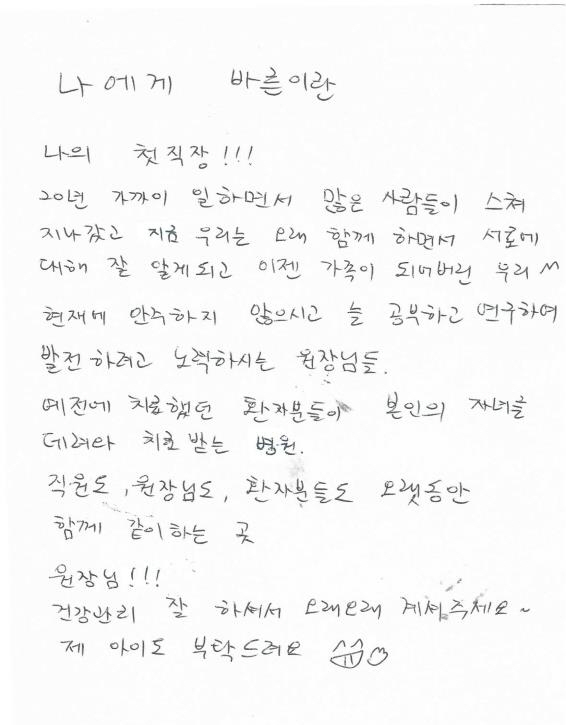 나에게 바른이란
나의 첫직장!!!
20년 가까이 일하면서 많은 사람들이 스쳐
지나갔고 지금 우리는 오래 함께 하면서 서로에
대해 잘 알게되고 이젠 가족이 되어버린 우리^^
현재에 안주하지 않으시고 늘 공부하고 연구하여
발전하려고 노력하시는 원장님들.
예전에 치료했던 환자분들이 본인의 자녀를
데려와 치료받는 병원.
직원도, 원장님도, 환자분들도 오랫동안
함께 같이하는 곳
원장님!!!
건강관리 잘 하셔서 오래오래 계셔주세요~
제 아이도 부탁드려요